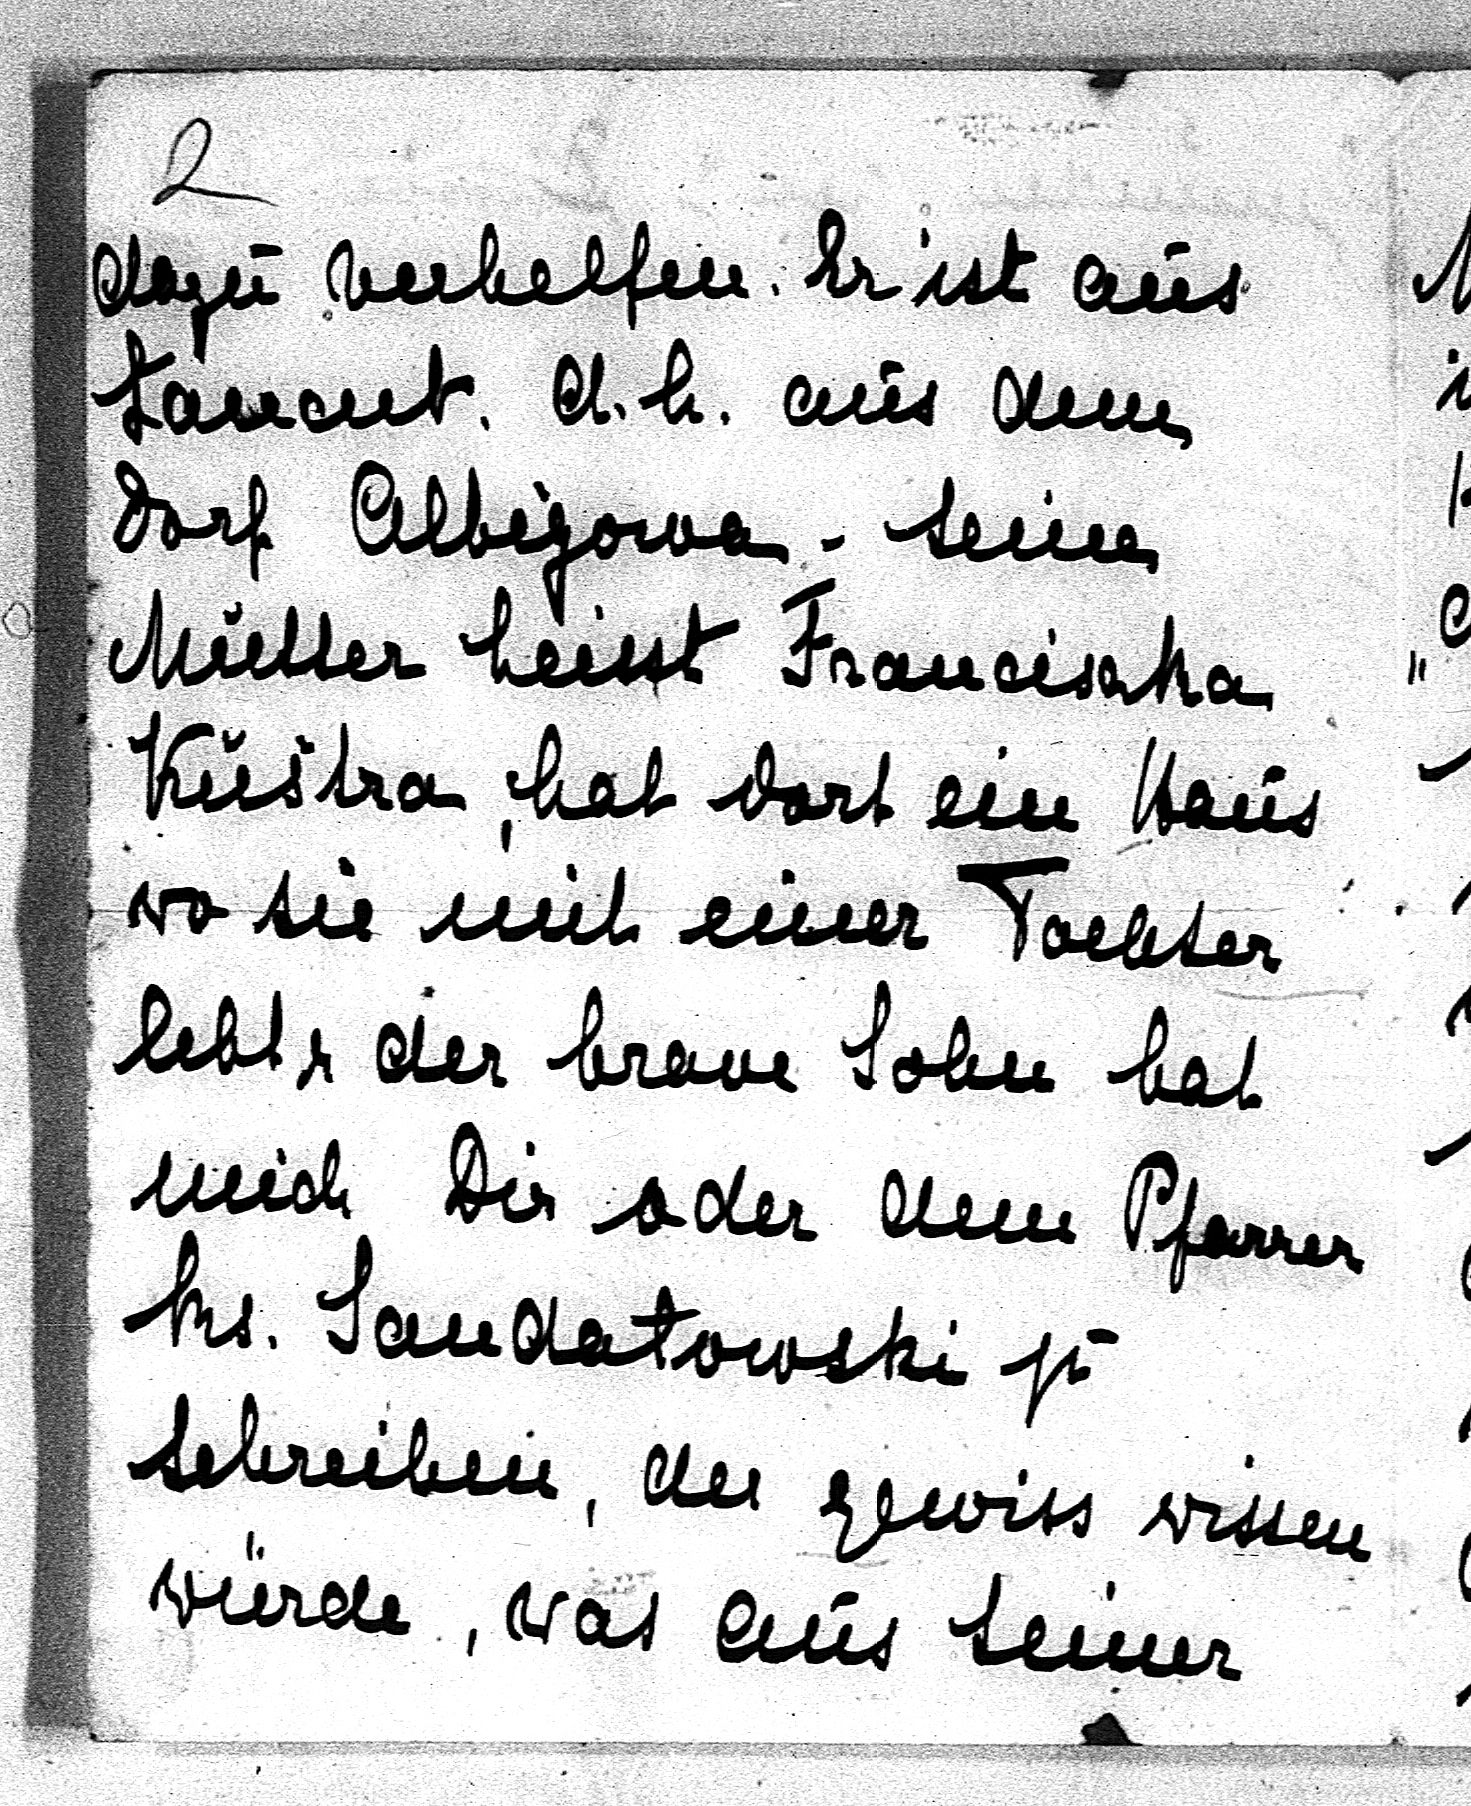 2
dazu verhelfen. Er ist aus
Łancut. d. h. aus dem
Dorf Albigowa - seine
Mutter heisst Franciszka
Kuśtra, hat dort ein Haus
wo sie mit einer Tochter
lebt, der brave Sohn hat
mich Dir oder dem Pfarrer
ks. Sandałowski zu
schreiben, der gewiss wissen
würde, was aus seiner